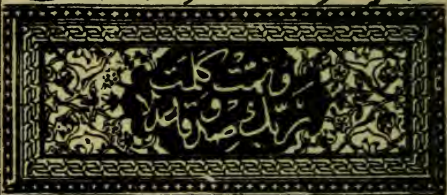 وَتَمَّتْ كَلِمَتُ
رَبِّكَ صِدْقًا وَعَدْلًا